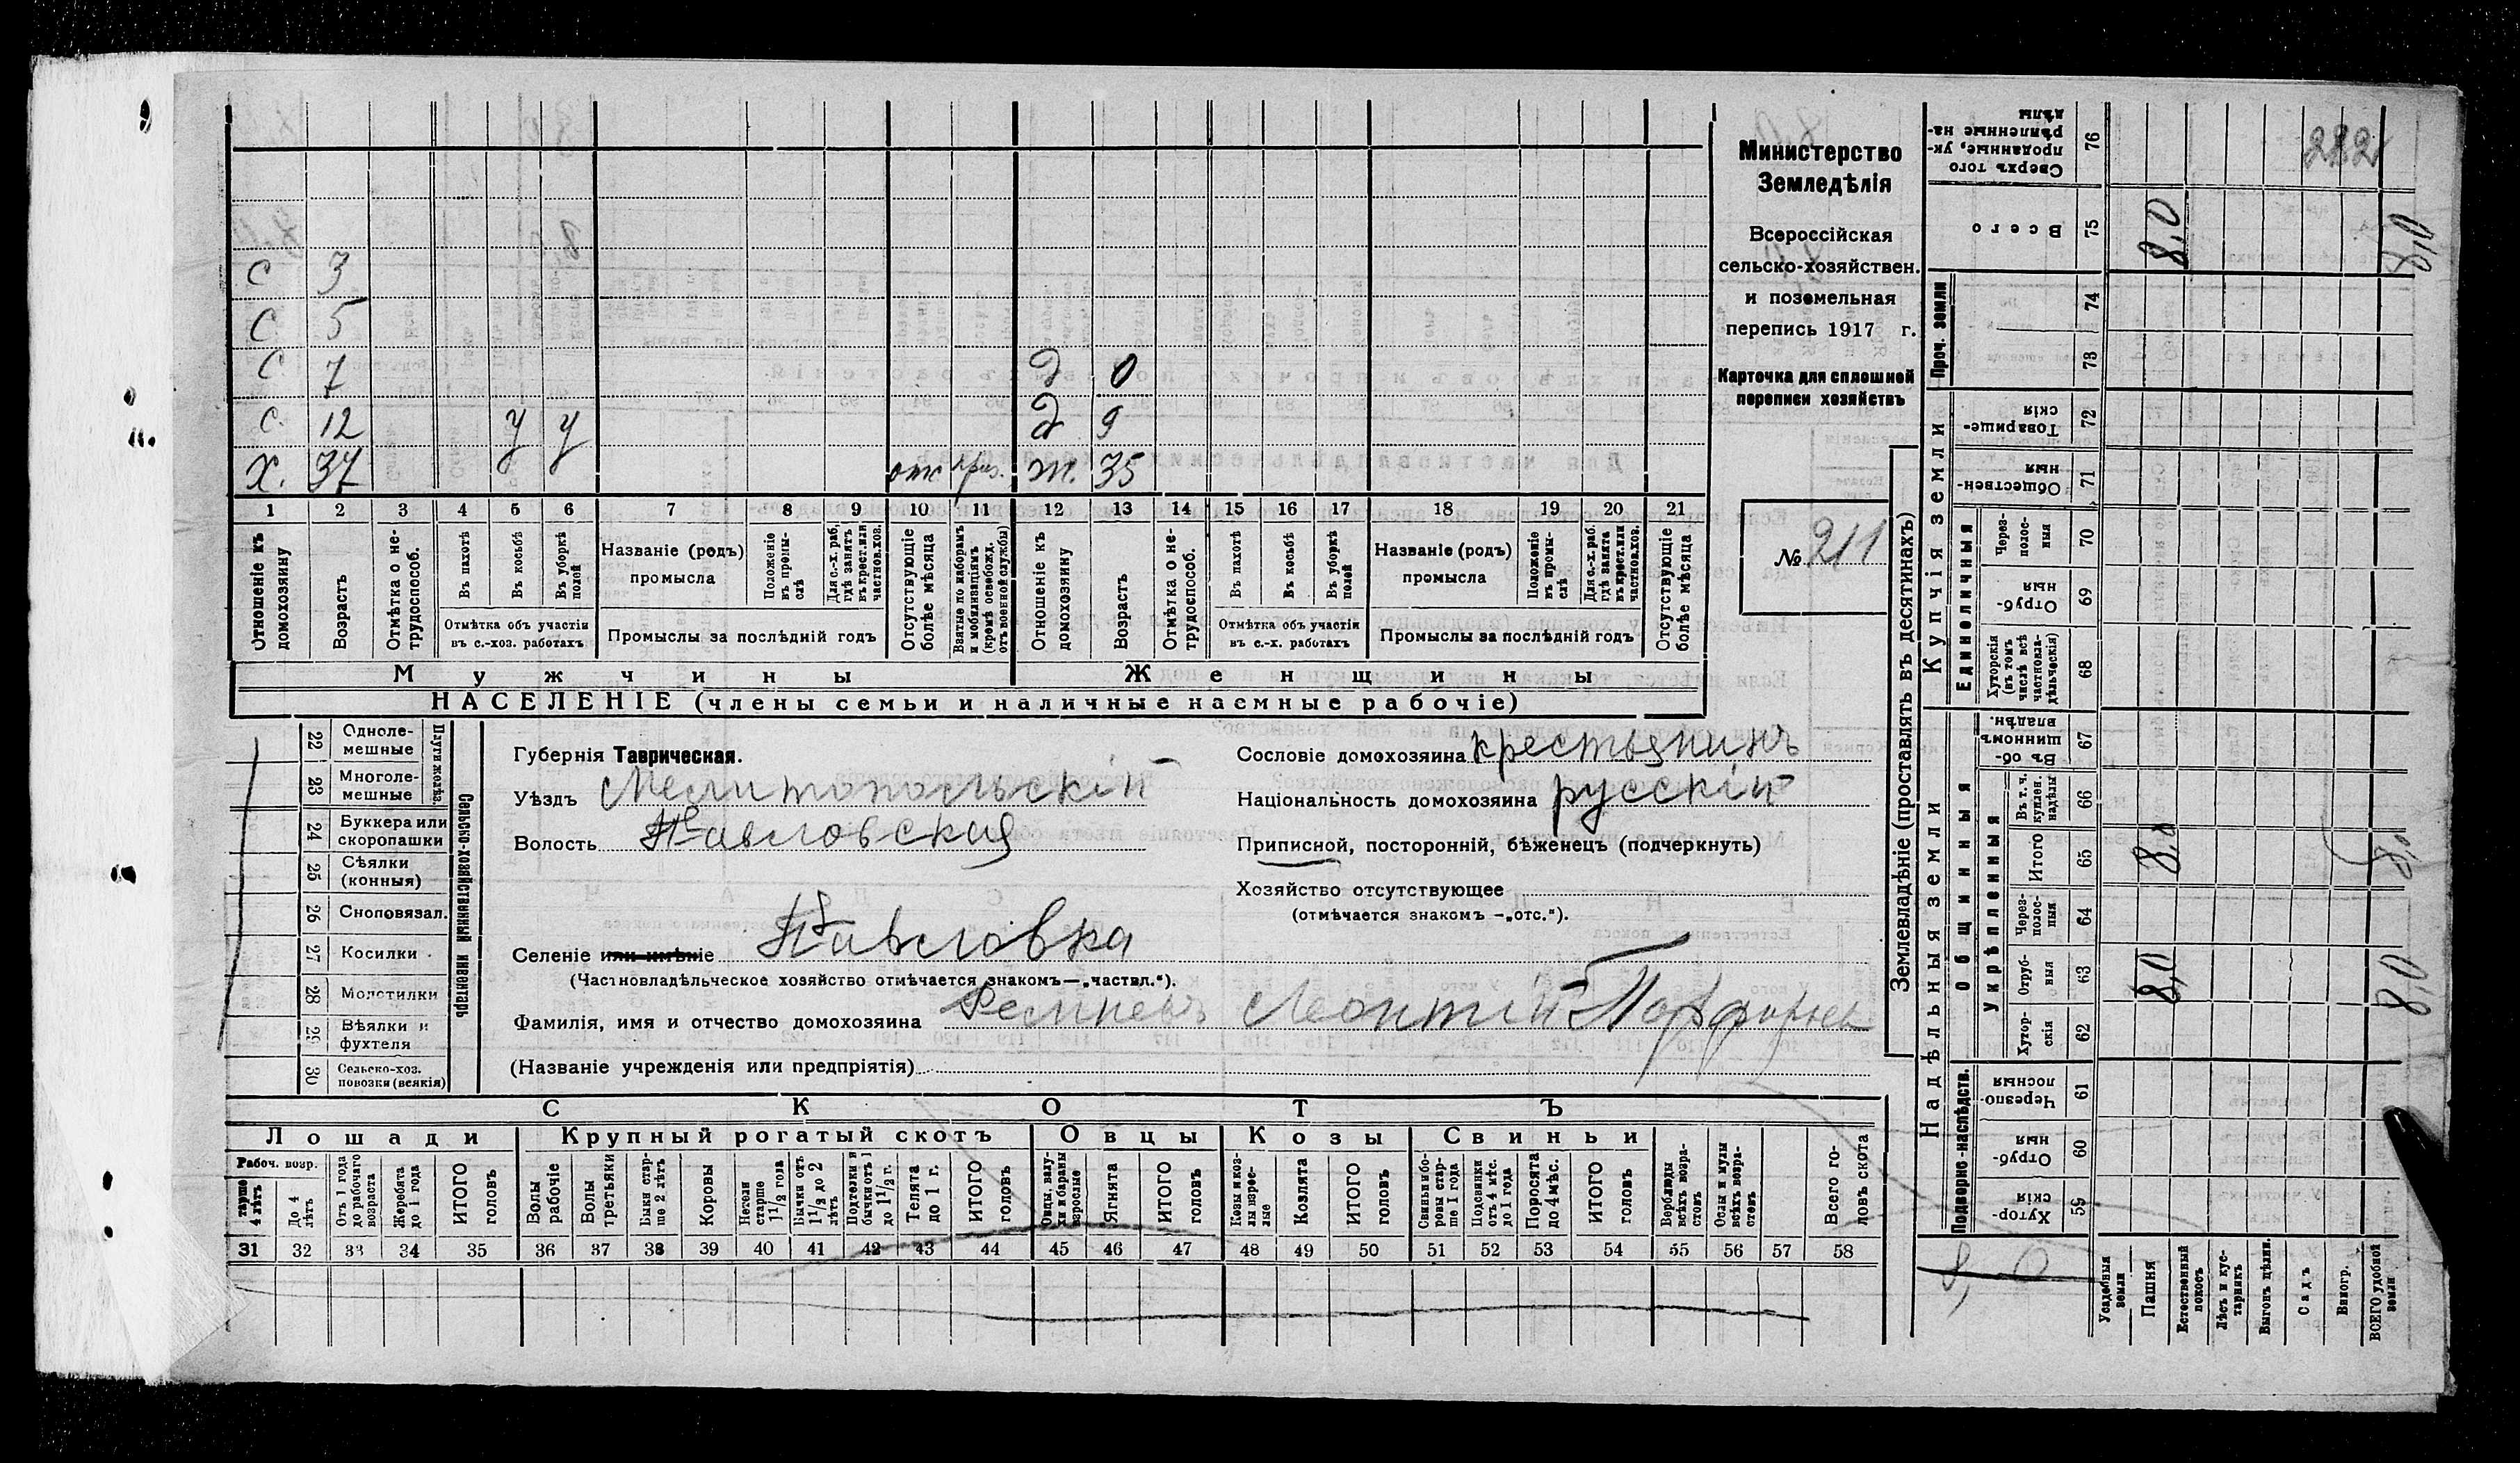 282
С 3
С 5
С 7 Д 0
С. 12 у у Д 9
Х. 37 отс Ж. 35
1 2 3 4 5 6 7 8 9 10 11 12 13 14 15 16 17 18 19 20 21
Отношеніе къ домохозяину
Возрастъ
Отмѣтка о не-трудоспособ.
Въ пахотѣ
Въ косьбѣ
Въ уборкѣ полей
Отмѣтка объ участіи
въ с.-хоз. работахъ
Названіе (родъ)
промысла
Положеніе въ промы-слѣ
Для с.-х. раб. гдѣ занятъ въ крест. или частновл. хоз.
Промыслы за послѣдній годъ
Отсутствующіе болѣе мѣсяца
Взятые по наборамъ и мобилизаціямъ (кромѣ освобожд. отъ военной службы)
Отношеніе къ домохозяину
Возрастъ
Отмѣтка о не-трудоспособ.
Въ пахотѣ
Въ косьбѣ
Въ уборкѣ полей
Отмѣтка объ участіи
въ с.-х. работахъ
Названіе (родъ)
промысла
Положеніе въ промы-слѣ
Для с.-х. раб. гдѣ занята въ крест. или частнов. хоз.
Промыслы за послѣдній годъ
Отсутствующіе болѣе мѣсяца
Мужчины Женщины
НАСЕЛЕНІЕ (члены семьи и наличные наемные рабочіе)
Министерство
Земледѣлія
Всероссійская
сельско-хозяйствен.
и поземельная
перепись 1917 г.
Карточка для сплошной
переписи хозяйствъ
№ 211
22 Одноле-мешные
23 Многоле-мешные
Плуги желѣз.
24 Буккера или скоропашки
25 Сѣялки (конныя)
26 Сноповязал.
27 Косилки
28 Молотилки
29 Вѣялки и фухтеля
30 Сельско-хоз. повозки (всякія)
Сельско-хозяйственный инвентарь
Губернія Таврическая.
Уѣздъ Мелитопольскій
Волость Павловская
Селеніе или имѣніе Павловка
(Частновладѣльческое хозяйство отмѣчается знакомъ—„частвл.“).
Фамилія, имя и отчество домохозяина Леонтій
(Названіе учрежденія или предпріятія)
Сословіе домохозяина крестьянинъ
Національность домохозяина русскій
Приписной, посторонній, бѣженецъ (подчеркнуть)
Хозяйство отсутствующее
(отмѣчается знакомъ —„отс.“).
СКОТЪ
Лошади Крупный рогатый скотъ Овцы Козы Свиньи
Рабоч. возр.
тарше 4 лѣтъ
До 4 лѣтъ
Отъ 1 года до рабочаго возраста
Жеребята до 1 года
ИТОГО головъ
Волы рабочіе
Волы третьяки
Быки стар-ше 2 лѣтъ
Коровы
Нетели старше 1 1/2 года
Бычки отъ 1 1/2 до 2 лѣтъ
Подтелки и бычки отъ 1 до 1 1/2 г.
Телята до 1 г.
ИТОГО головъ
Овцы, валу-хи и бараны взрослые
Ягнята
ИТОГО головъ
Козы и коз-лы взрос-лые
Козлята
ИТОГО головъ
Свиньи и бо-ровы стар-ше 1 года
Подсвинки отъ 4 мѣс. до 1 года
Поросята до 4 мѣс.
ИТОГО головъ
Верблюды всѣхъ возра-стовъ
Ослы и мулы всѣхъ возра-стовъ
Всего го-ловъ скота
31 32 33 34 35 36 37 38 39 40 41 42 43 44 45 46 47 48 49 50 51 52 53 54 55 56 57 58
Землевладѣніе (проставлять въ десятинахъ)
Надѣльныя земли Купчія земли
Подворно-наслѣдств.
Общинныя
Укрѣпленныя
Единоличныя
Проч. земли
59 Хутор-скія
60 Отруб-ныя
61 Черезпо-лосныя
62 Хутор-скія
63 Отруб-ныя 8,0 8,0
64 Черезъ-полос-ныя
65 Итого 8,0 8,0
66 Въ т. ч. куплен. надѣлы
67 Въ об-щинномъ владѣн.
68 Хуторскія (въ томъ числѣ всѣ частновла-дѣльческія)
69 Отруб-ныя
70 Черезъ-полос-ныя
71 Обществен-ныя
72 Товарище-скія
73
74
75 Всего 8,0 8,0
76 Сверхъ того проданные, ук-рѣпленные на-дѣлы
8,0
Усадебныя земли
Пашня
Естественный покосъ
Лѣсъ и кус-тарникъ
Выгонъ цѣлин.
Садъ
Виногр.
ВСЕГО удобной земли